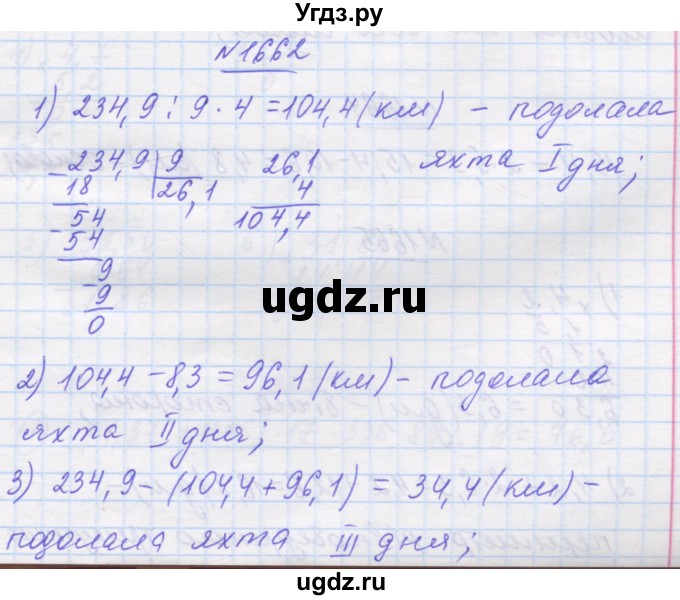 Угдз.ру
№1662
1) 234,9 : 9 · 4 = 104,4 (км) – подолала
яхта I дня;
- 234,9 | 9
18 | 26,1
- 54
54
- 9
9
0
26,1
4
104,4
ugdz.ru
2) 104,4 – 8,3 = 96,1 (км) – подолала
яхта II дня;
3) 234,9 – (104,4 + 96,1) = 34,4 (км) –
подолала яхта III дня;
ugdz.ru